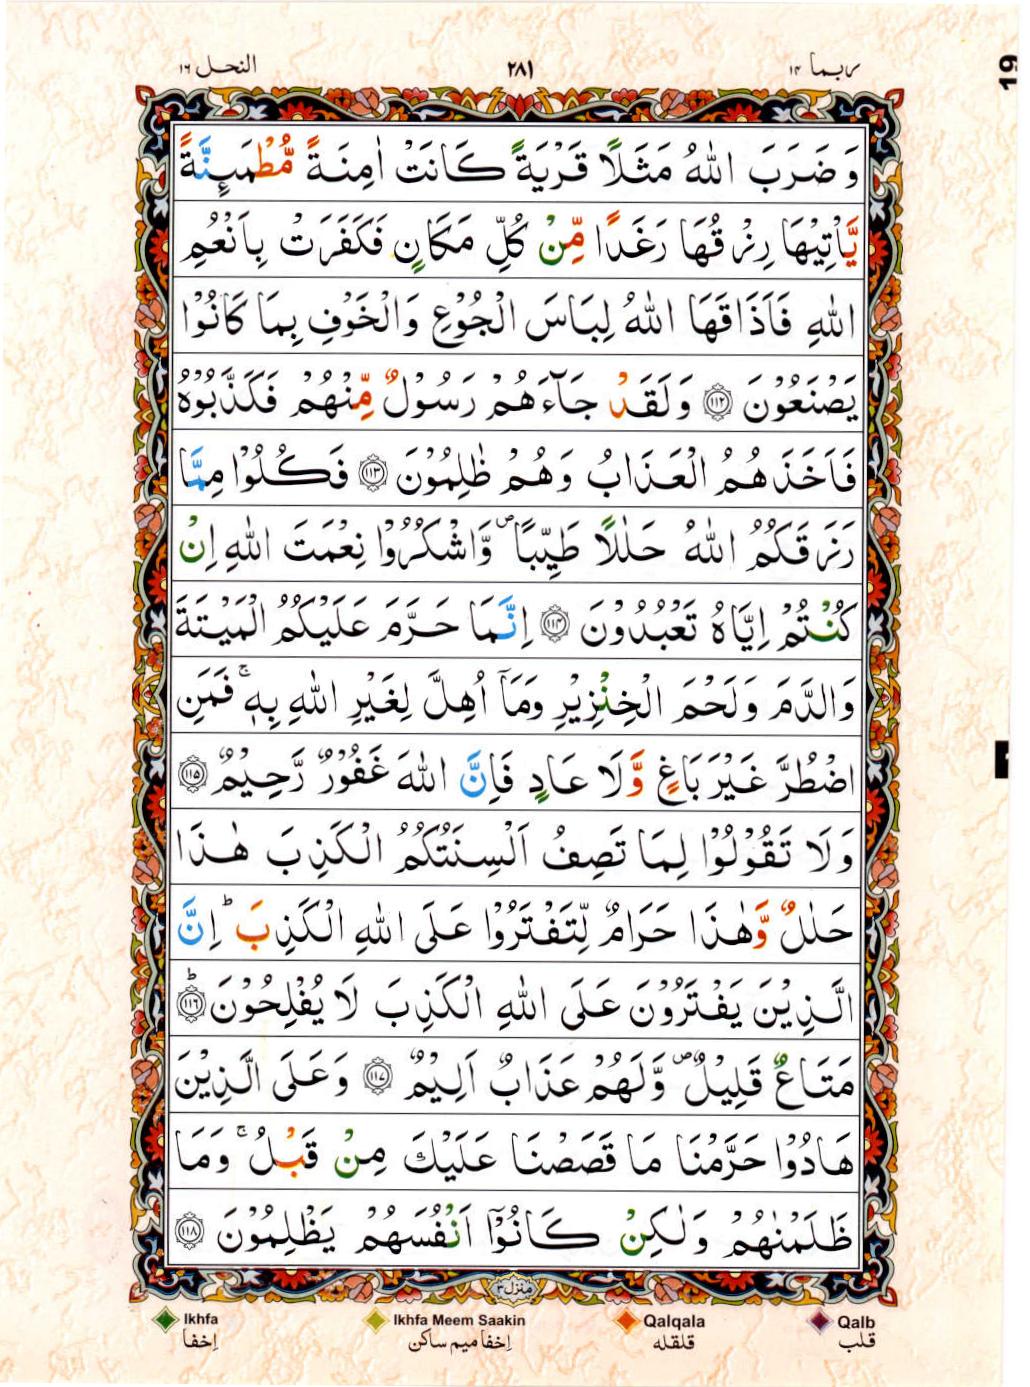 النحل ١٦
٢٨١
ربما ١٤
19
وَضَرَبَ اللّٰهُ مَثَلًا قَرْيَةً كَانَتْ اٰمِنَةً مُّطْمَىِٕنَّةً
يَّاْتِيْهَا رِزْقُهَا رَغَدًا مِّنْ كُلِّ مَكَانٍ فَكَفَرَتْ بِاَنْعُمِ
اللّٰهِ فَاَذَاقَهَا اللّٰهُ لِبَاسَ الْجُوْعِ وَالْخَوْفِ بِمَا كَانُوْا
يَصْنَعُوْنَ ﴿۱۱۲﴾ وَلَقَدْ جَآءَهُمْ رَسُوْلٌ مِّنْهُمْ فَكَذَّبُوْهُ
فَاَخَذَهُمُ الْعَذَابُ وَهُمْ ظٰلِمُوْنَ ﴿۱۱۳﴾ فَكُلُوْا مِمَّا
رَزَقَكُمُ اللّٰهُ حَلٰلًا طَيِّبًا ۪ وَّاشْكُرُوْا نِعْمَتَ اللّٰهِ اِنْ
كُنْتُمْ اِيَّاهُ تَعْبُدُوْنَ ﴿۱۱۴﴾ اِنَّمَا حَرَّمَ عَلَيْكُمُ الْمَيْتَةَ
وَالدَّمَ وَلَحْمَ الْخِنْزِيْرِ وَمَآ اُهِلَّ لِغَيْرِ اللّٰهِ بِهٖ ۚ فَمَنِ
اضْطُرَّ غَيْرَ بَاغٍ وَّلَا عَادٍ فَاِنَّ اللّٰهَ غَفُوْرٌ رَّحِيْمٌ ﴿۱۱۵﴾
وَلَا تَقُوْلُوْا لِمَا تَصِفُ اَلْسِنَتُكُمُ الْكَذِبَ هٰذَا
حَلٰلٌ وَّهٰذَا حَرَامٌ لِّتَفْتَرُوْا عَلَى اللّٰهِ الْكَذِبَ ؕ اِنَّ
الَّذِيْنَ يَفْتَرُوْنَ عَلَى اللّٰهِ الْكَذِبَ لَا يُفْلِحُوْنَ ؕ﴿۱۱۶﴾
مَتَاعٌ قَلِيْلٌ ۪ وَّلَهُمْ عَذَابٌ اَلِيْمٌ ﴿۱۱۷﴾ وَعَلَى الَّذِيْنَ
هَادُوْا حَرَّمْنَا مَا قَصَصْنَا عَلَيْكَ مِنْ قَبْلُ ۚ وَمَا
ظَلَمْنٰهُمْ وَلٰكِنْ كَانُوْۤا اَنْفُسَهُمْ يَظْلِمُوْنَ ﴿۱۱۸﴾
منزل ۳
Ikhfa
Ikhfa Meem Saakin
Qalqala
Qalb
اِخفا
اِخفا میم ساکن
قلقله
قلب